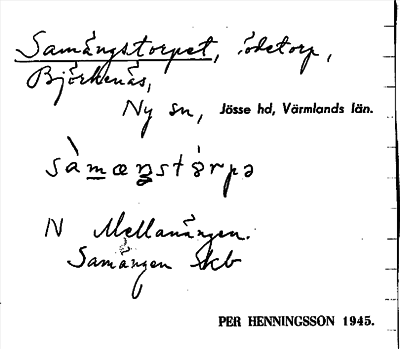 Samängstorpet, ödetorp,
Björkenäs,
Ny sn, Jösse hd, Värmlands län.
sàmæŋstórpə
N Mellanängen.
Samängen Skb
PER HENNINGSSON 1945.